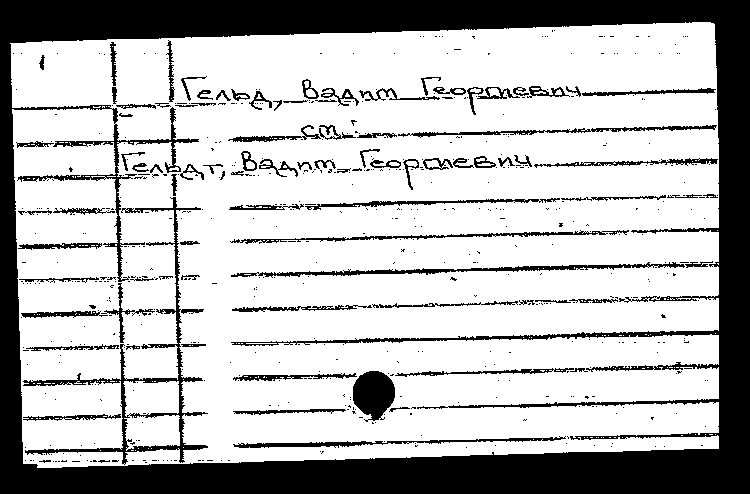 Гельд, Вадим Георгиевич
см.:
Гельдт, Вадим Георгиевич